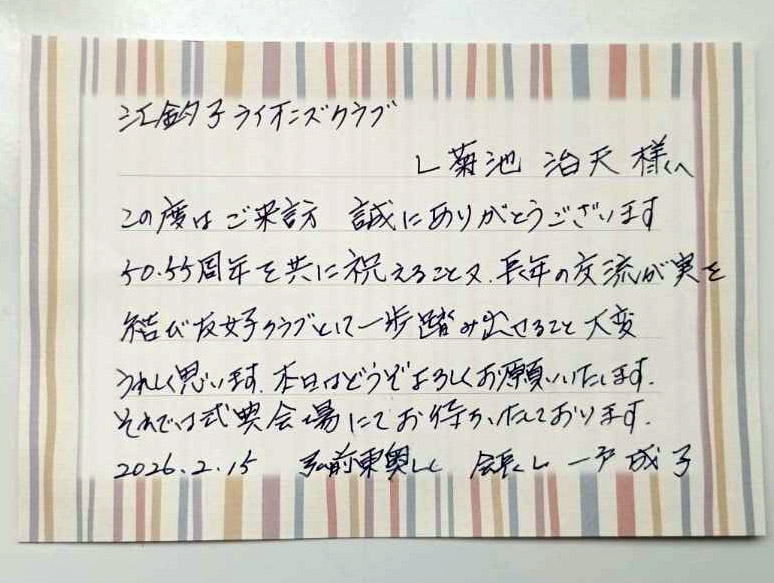 江釣子ライオンズクラブ
L菊池 治天 様へ
この度はご来訪 誠にありがとうございます
50.55周年を共に祝えること又、長年の交流が実を
結び友好クラブとして一歩踏み出せること大変
うれしく思います。本日はどうぞよろしくお願いいたします。
それでは式典会場にてお待ちいたしております。
2026.2.15 弘前東奥LC 会長L 一戸成子